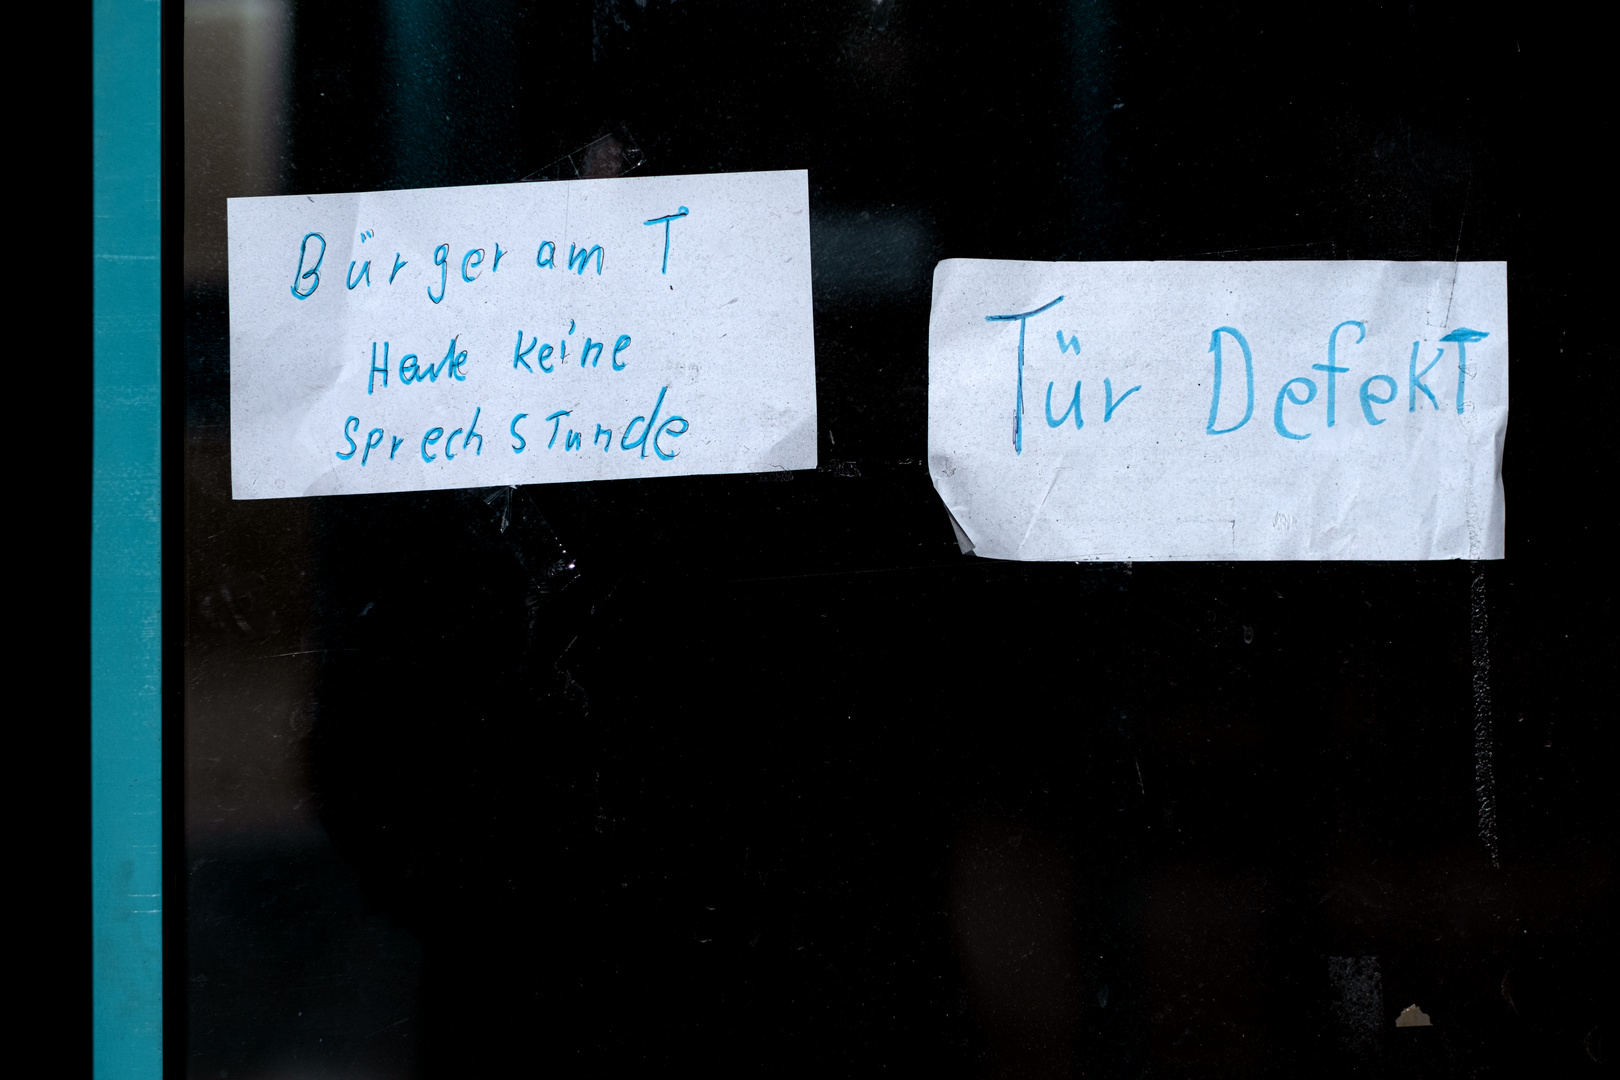 Bürger am T
Heute keine
Sprech STunde
Tür DefekT